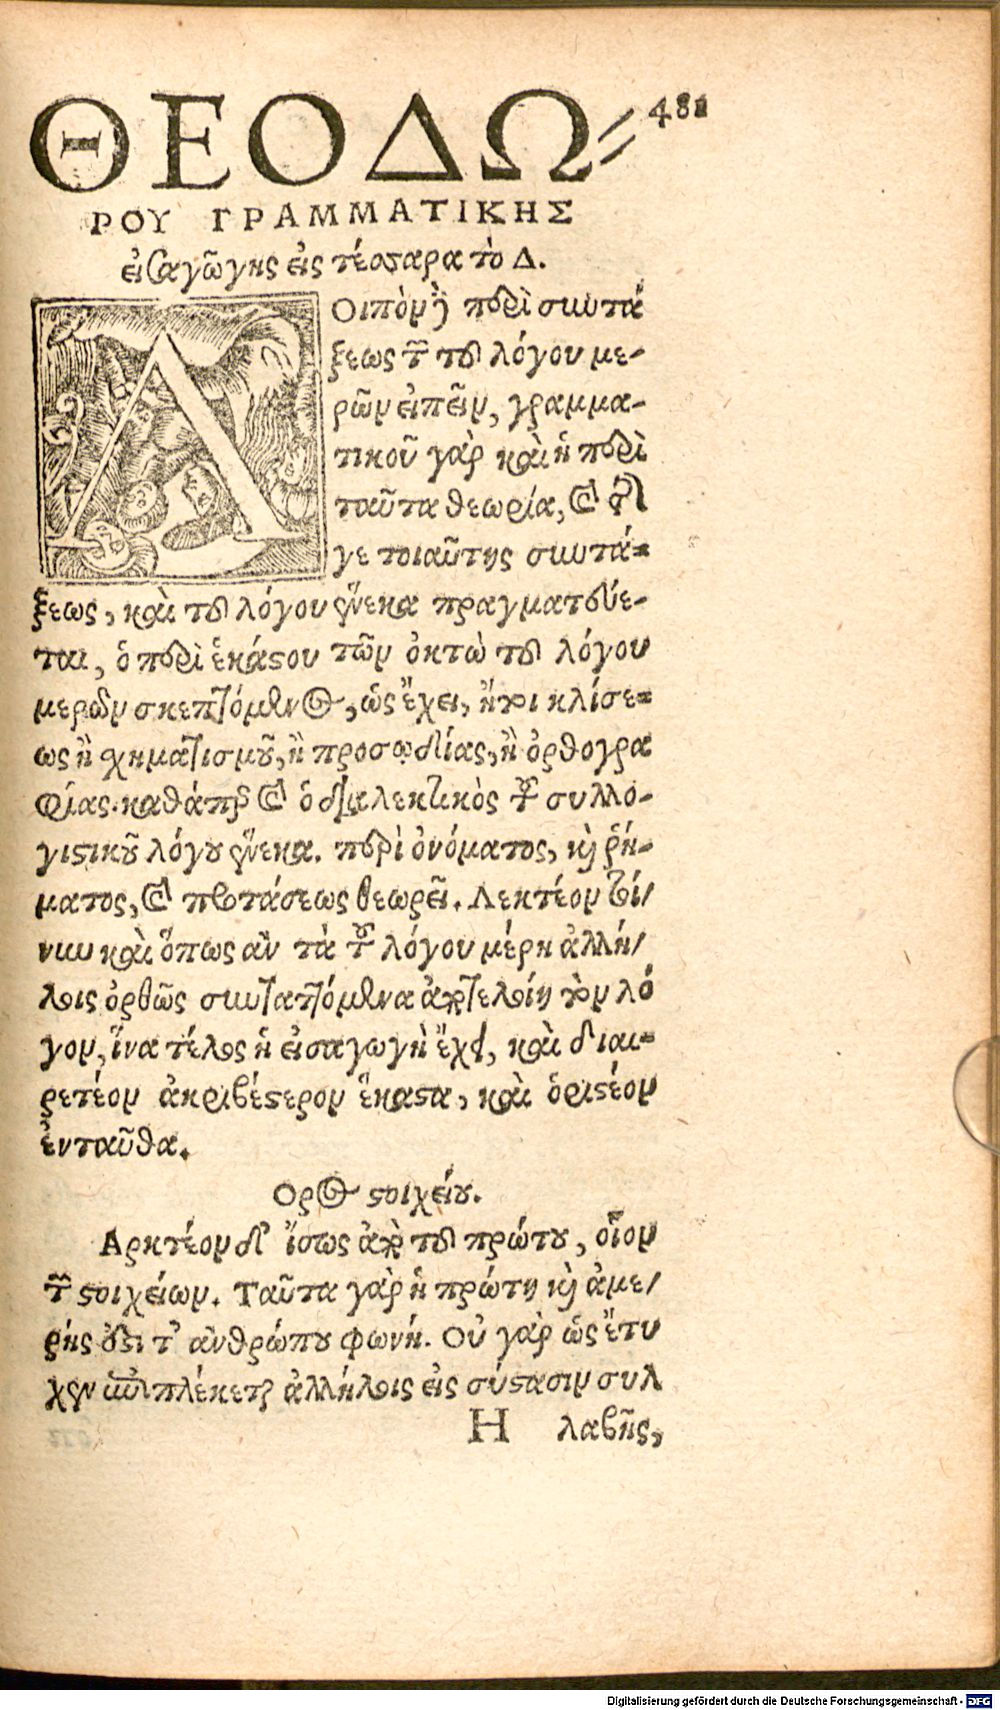 ΘΕΟΔΩ=
481
ΡΟΥ ΓΡΑΜΜΑΤΙΚΗΣ
εἰσαγωγῆς εἰς τέσσαρα τὸ Δ.
Λοιπὸν ἢ περὶ συντά
ξεως τῶν τοῦ λόγου με-
ρῶν εἰπεῖν, γραμμα-
τικοῦ γὰρ καὶ ἡ περὶ
ταῦτα θεωρία, καὶ
γε τοιαύτης συντά=
ξεως, καὶ τοῦ λόγου ἕνεκα πραγματεύε-
ται, ὁ περὶ ἑκάστου τῶν ὀκτὼ τοῦ λόγου
μερῶν σκεπτόμενος, ὡς ἔχει, ἤτοι κλίσε=
ως ἢ χηματισμοῦ, ἢ προσῳδίας, ἢ ὀρθογρα
φίας. καθάπερ καὶ ὁ διαλεκτικὸς τοῦ συλλο-
γιστικοῦ λόγου ἕνεκα. περὶ ὀνόματος, καὶ ῥή-
ματος, καὶ προτάσεως θεωρεῖ. Λεκτέον τοί/
νυν καὶ ὅπως ἂν τὰ τοῦ λόγου μέρη ἀλλή/
λοις ὀρθῶς συνταττόμενα ἀποτελοίη τὸν λό
γον, ἵνα τέλος ἡ εἰσαγωγὴ ἔχῃ, καὶ διαι=
ρετέον ἀκριβέστερον ἕκαστα, καὶ ὁριστέον
ἐνταῦθα.
Ορος στοιχείου.
Αρκτέον δ' ἴσως ἀπὸ τοῦ πρώτου, οἷον
τῶν στοιχείων. Ταῦτα γὰρ ἡ πρώτη καὶ ἀμε/
ρής ἐστι τοῦ ἀνθρώπου φωνή. Οὐ γὰρ ὡς ἔτυ
χεν συμπλέκεται ἀλλήλοις εἰς σύστασιν συλ
Η λαβῆς,
Digitalisierung gefördert durch die Deutsche Forschungsgemeinschaft - DFG